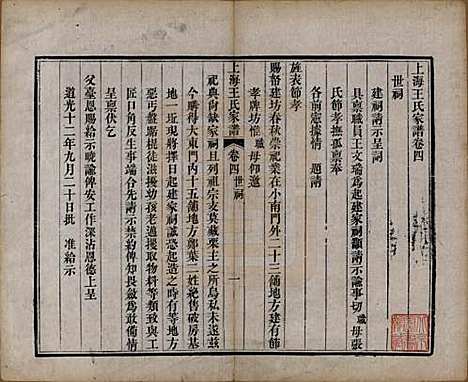 上海王氏家譜卷四
世祠
建祠請示呈詞
具稟職員王文瑞爲起建家祠籲請示諭事切職母張
氏節孝撫孤稟奉
各前憲據情 題請
旌表節孝
賜帑建坊春秋崇祀業在小南門外二十三舖地方建有節
孝牌坊惟職母仰邀
上海王氏家譜 卷四 世祠 一
祀典尙缺家祠且列祖宗支莫藏栗主之所烏私未遂兹
今購得大東門内十五舖地方鄭葉二姓絶售破房基
地一近現將擇日起建家祠誠恐起造之時有等地方
惡丐盤踞作踐攪擾硬行強取物料等情致水木與工
匠口角反生事端合先請示禁約俾知畏斂爲敢備情
呈稟伏乞
父臺恩賜給示曉諭俾安工作深沾恩德上呈
道光十二年九月二十日批 准給示